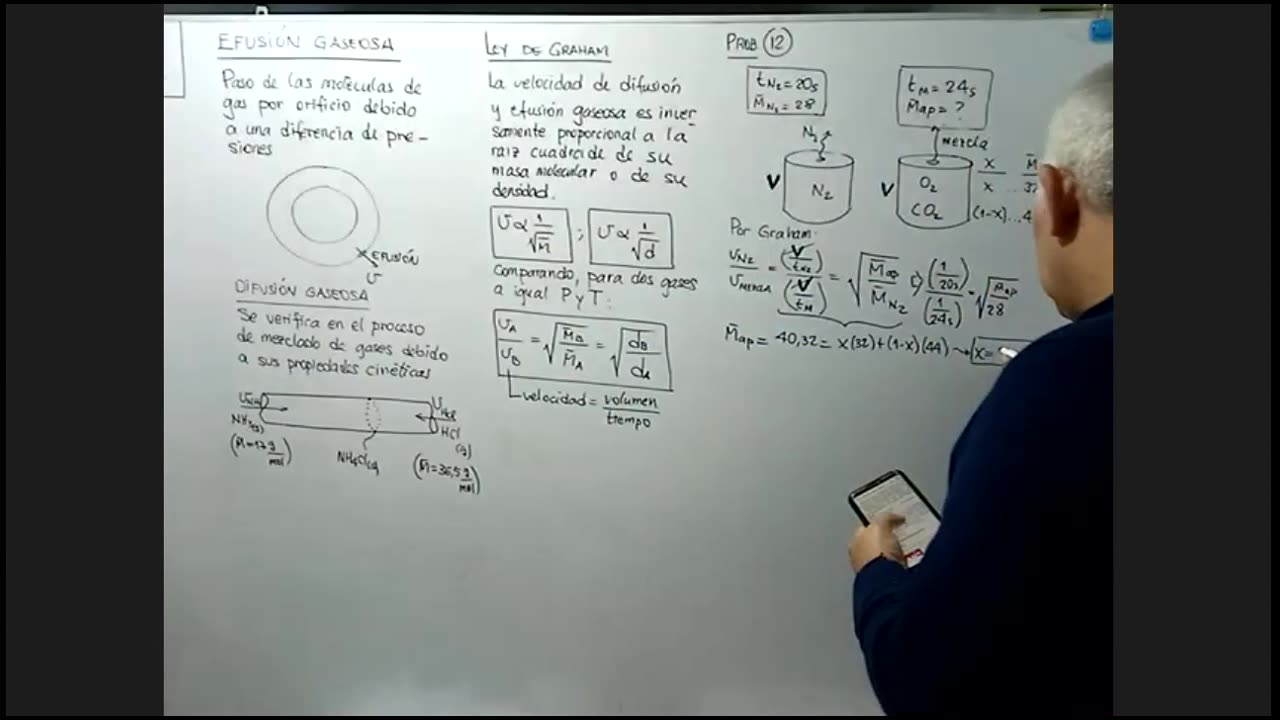 EFUSIÓN GASEOSA
Paso de las moléculas de
gas por orificio debido
a una diferencia de pre-
siones
EFUSIÓN
DIFUSIÓN GASEOSA
Se verifica en el proceso
de mezclado de gases debido
a sus propiedades cinéticas
NH₃(g)
(M̄=17 g/mol)
NH₄Cl(s)
υHCl
HCl
(g)
(M̄=36,5 g/mol)
LEY DE GRAHAM
La velocidad de difusión
y efusión gaseosa es inver-
samente proporcional a la
raiz cuadrada de su
masa molecular o de su
densidad.
υ ∝ 1/√M̄ ; υ ∝ 1/√d
Comparando, para dos gases
a igual P y T:
υA/υB = √(M̄B/M̄A) = √(dB/dA)
velocidad = volumen/tiempo
PROB 12
tN₂ = 20s
M̄N₂ = 28
N₂
V
N₂
tM = 24s
M̄ap = ?
mezcla
V
O₂
CO₂
x M̄
x ... 32
(1-x)...4
Por Graham:
υN₂/υMEZCLA = (V/tN₂)/(V/tM) = √(M̄ap/M̄N₂) ⇒ (1/20s)/(1/24s) = √(M̄ap/28)
M̄ap = 40,32 = x(32)+(1-x)(44) → x=